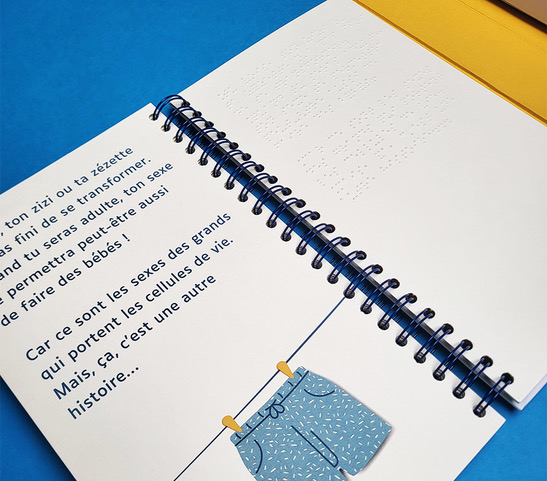 , ton zizi ou ta zézette
as fini de se transformer.
and tu seras adulte, ton sexe
e permettra peut-être aussi
de faire des bébés !
Car ce sont les sexes des grands
qui portent les cellules de vie.
Mais, ça, c'est une autre
histoire...